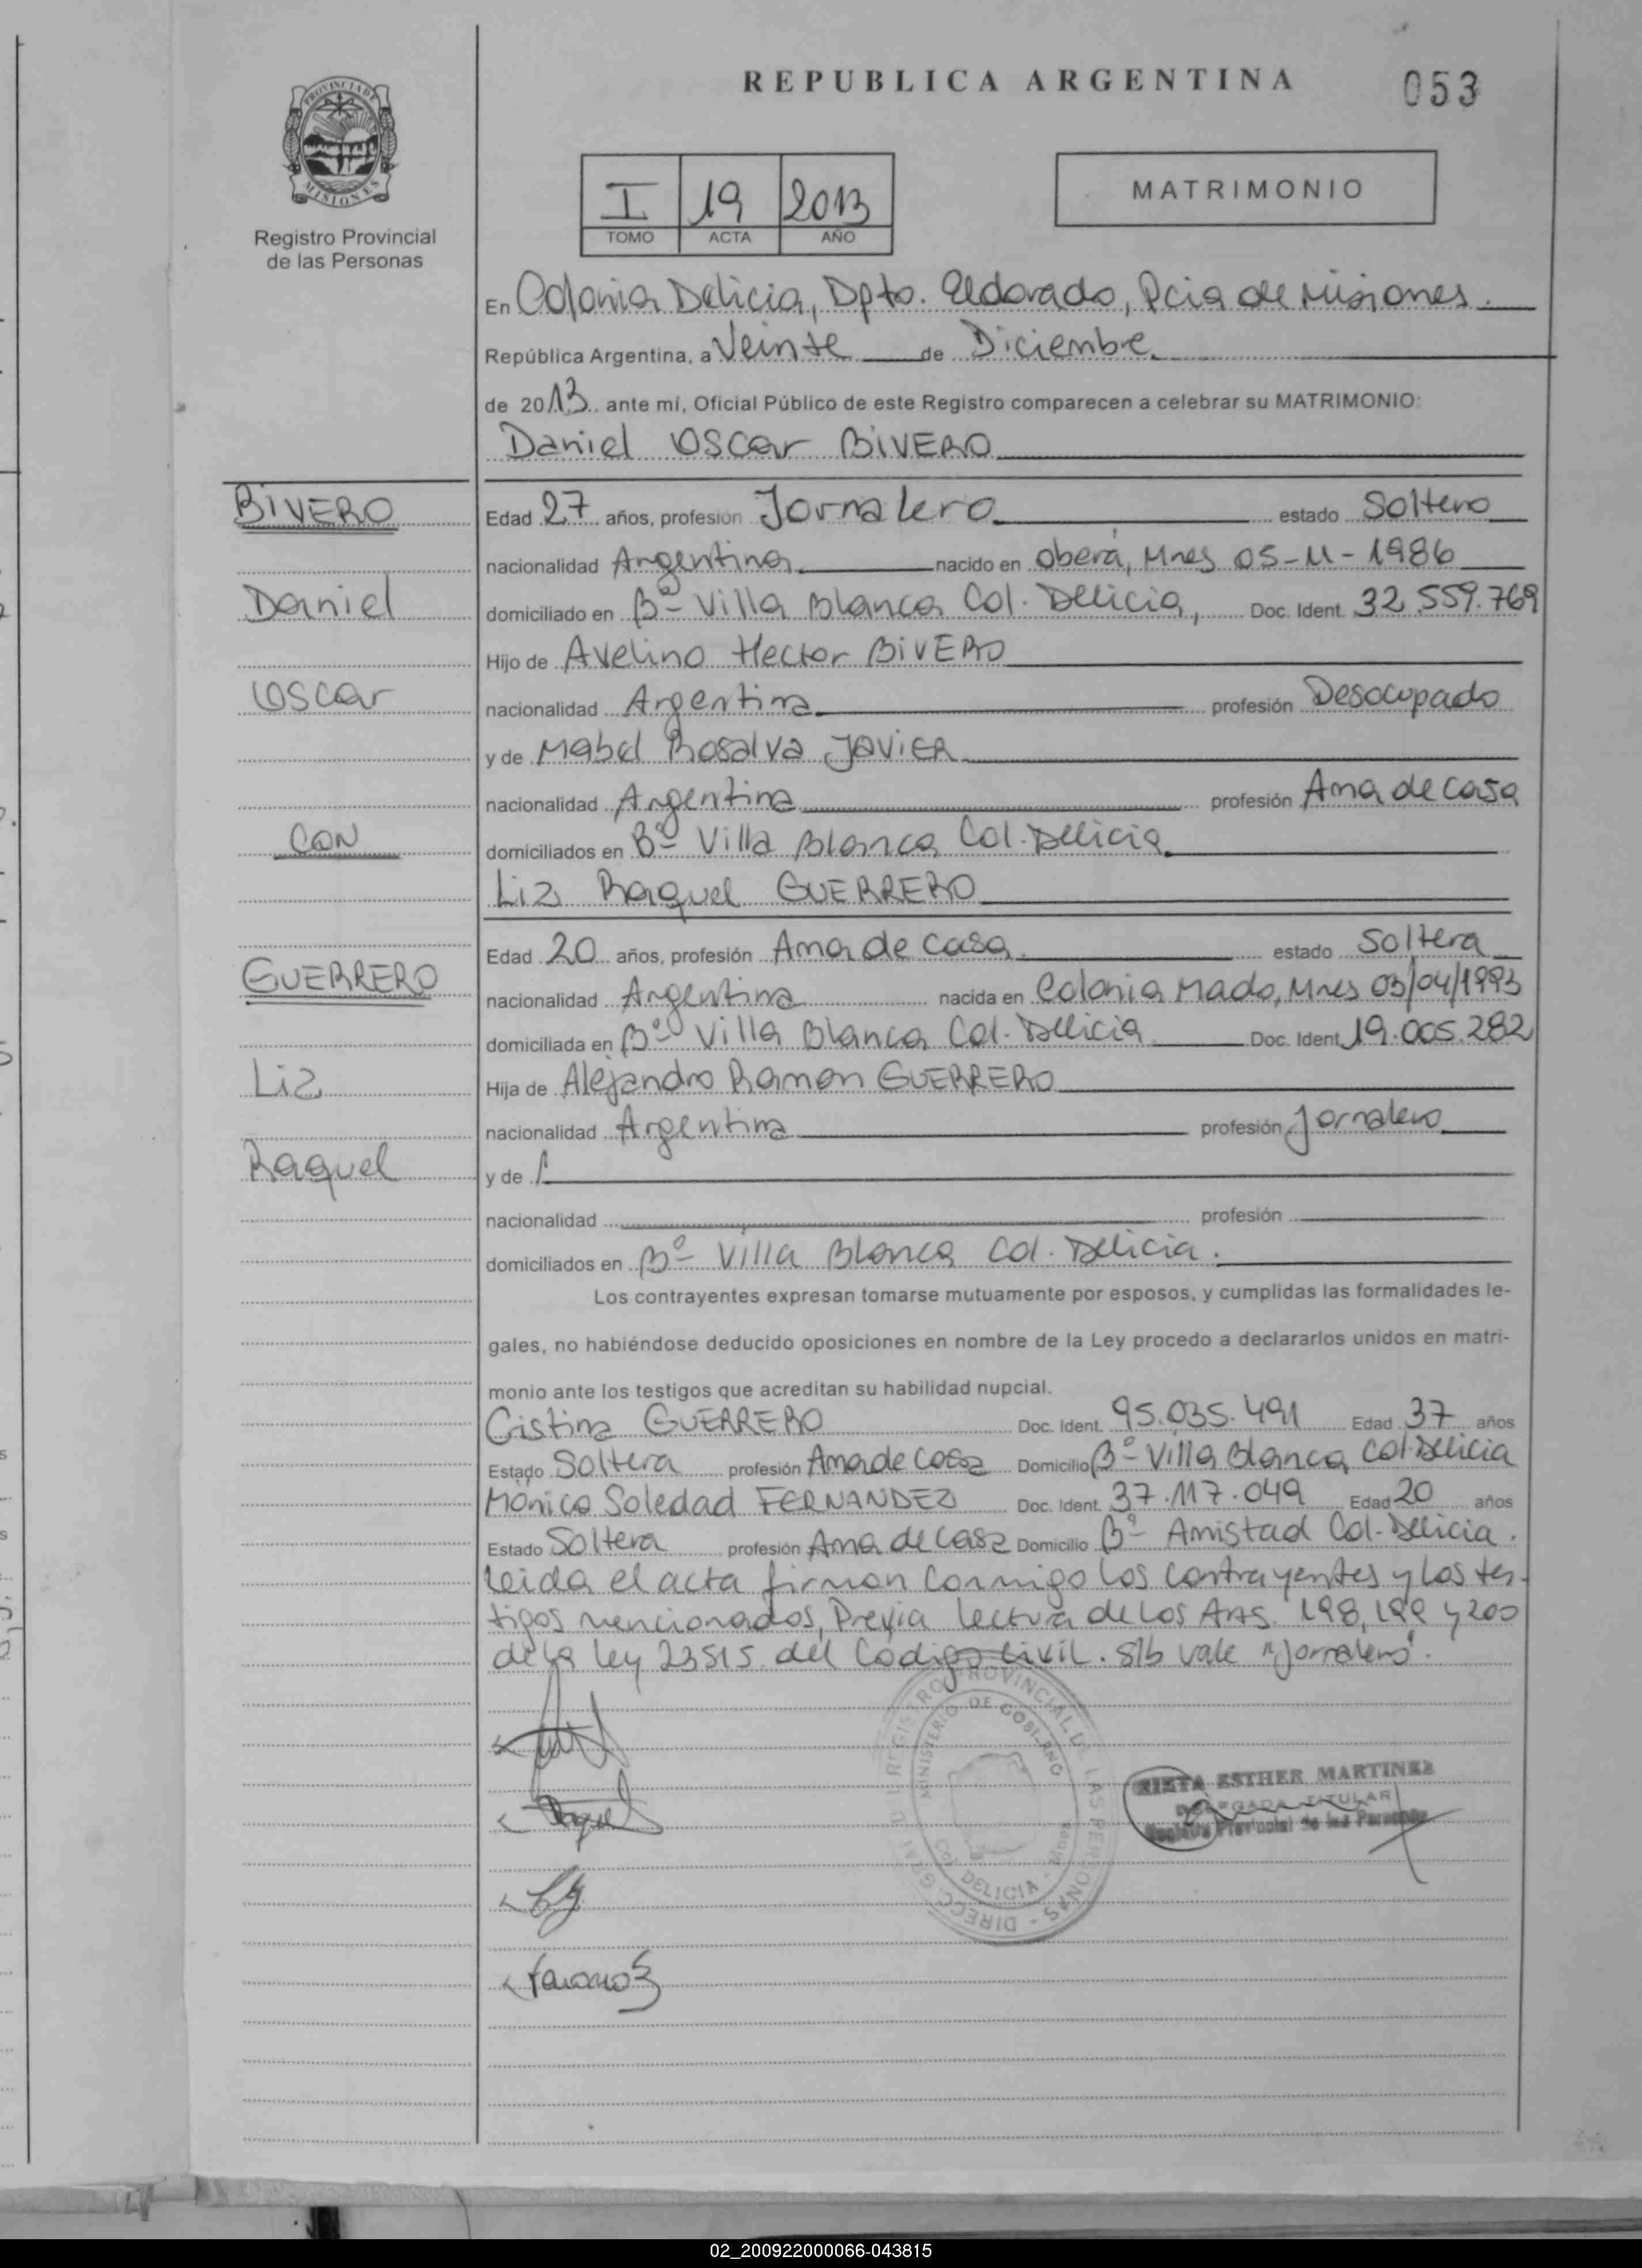 REPUBLICA ARGENTINA
053
PROVINCIA DE
MISIONES
Registro Provincial
de las Personas
I 19 2013
TOMO ACTA AÑO
MATRIMONIO
En Colonia Delicia, Dpto. Eldorado, Pcia de Misiones.
República Argentina, a Veinte de Diciembre
de 2013 ante mí, Oficial Público de este Registro comparecen a celebrar su MATRIMONIO:
Daniel Oscar BiVERO
BiVERO
Daniel
Oscar
CON
GUERRERO
Liz
Raquel
Edad 27 años, profesión Jornalero estado Soltero
nacionalidad Argentina nacido en Oberá, Mnes 05-11-1986
domiciliado en Bº Villa Blanca Col. Delicia, Doc. Ident. 32.559.769
Hijo de Avelino Hector BiVERO
nacionalidad Argentina profesión Desocupado
y de Mabel Rosalva JAViER
nacionalidad Argentina profesión Ama de casa
domiciliados en Bº Villa Blanca Col. Delicia
Liz Raquel GUERRERO
Edad 20 años, profesión Ama de casa estado Soltera
nacionalidad Argentina nacida en Colonia Mado, Mnes 03/04/1993
domiciliada en Bº Villa Blanca Col. Delicia Doc. Ident. 19.005.282
Hija de Alejandro Ramon GUERRERO
nacionalidad Argentina profesión Jornalero
y de
nacionalidad profesión
domiciliados en Bº Villa Blanca Col. Delicia.
Los contrayentes expresan tomarse mutuamente por esposos, y cumplidas las formalidades le-
gales, no habiéndose deducido oposiciones en nombre de la Ley procedo a declararlos unidos en matri-
monio ante los testigos que acreditan su habilidad nupcial.
Cistina GUERRERO Doc. Ident. 95.035.491 Edad 37 años
Estado Soltera profesión Ama de casa Domicilio Bº Villa Blanca Col. Delicia
Mónica Soledad FERNANDEZ Doc. Ident. 37.117.049 Edad 20 años
Estado Soltera profesión Ama de casa Domicilio Bº Amistad Col. Delicia.
Leida el acta firman conmigo los contrayentes y los tes-
tigos mencionados, Previa lectura de los Arts. 198, 199 y 200
de la ley 23515 del Código Civil. S/b vale "Jornalero".
Raquel
DIRECC. GRAL. DE REGISTRO PROVINCIAL DE LAS PERSONAS
MINISTERIO DE GOBIERNO
COL. DELICIA
ESTHER MARTINEZ
DELEGADA TITULAR
Registro Provincial de las Personas
02_200922000066-043815